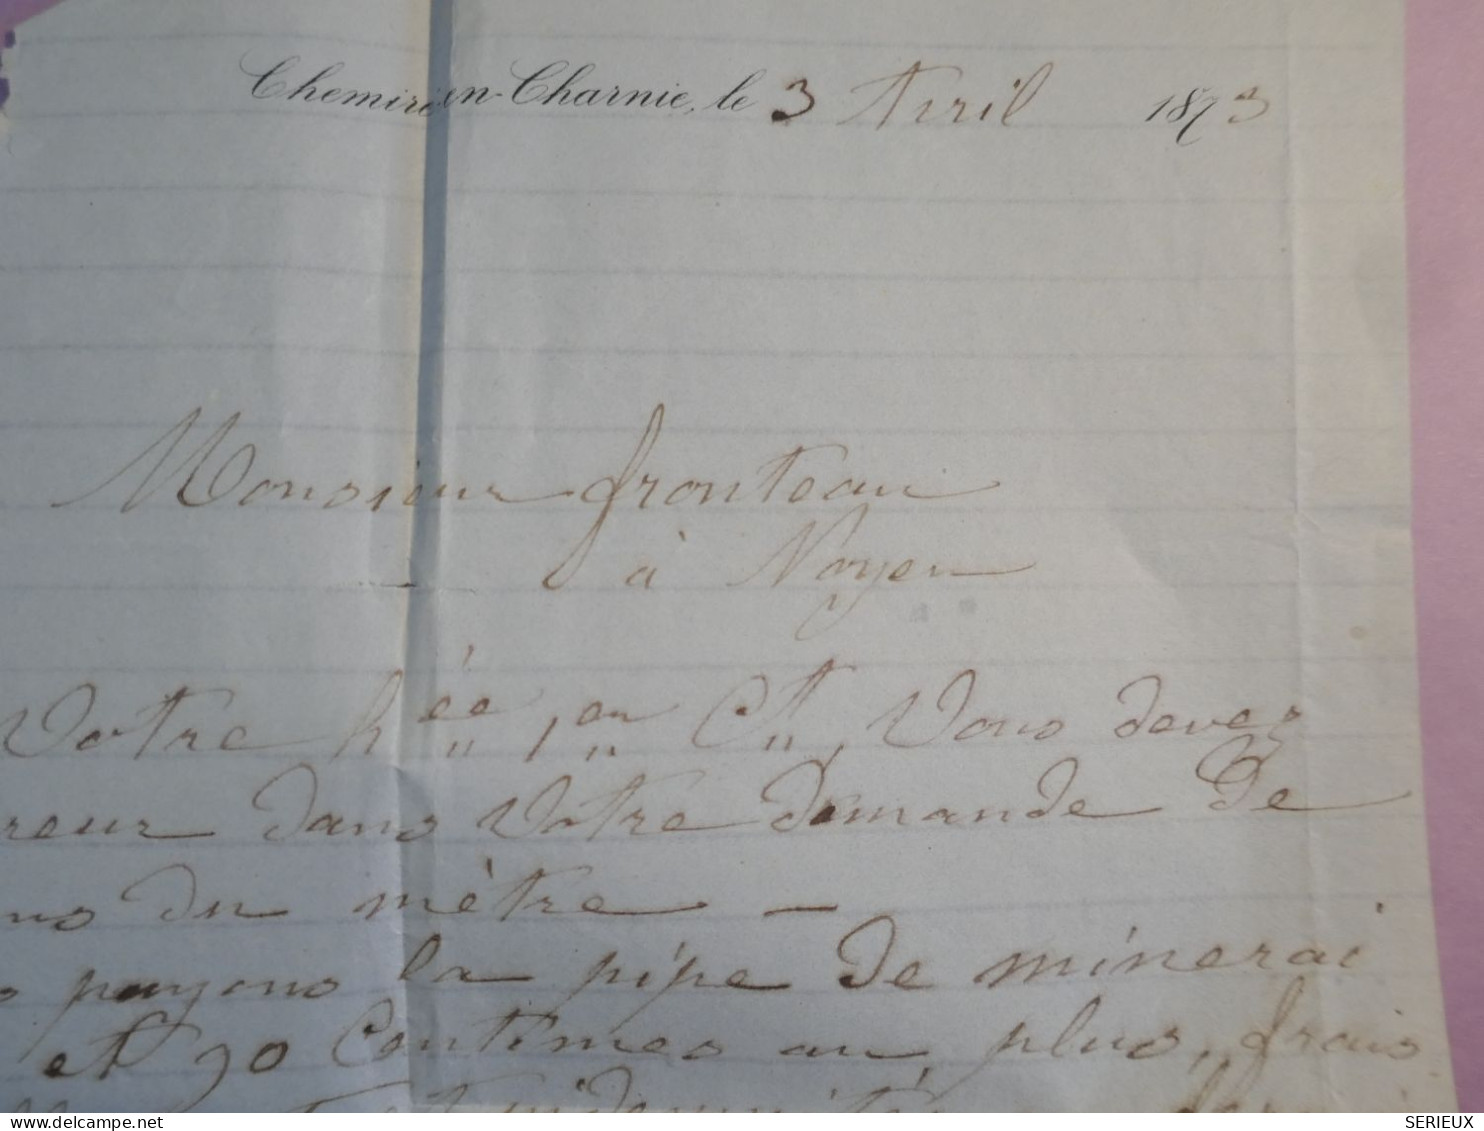 Chemiré-en-Charnie, le 3 Avril 1873
Monsieur fronteau
à Noyen
Votre h ée, en Ct, Vous devez
reur dans Votre demande de
du mètre —
payons la pipe de minerai
et 90 Centimes au plus, frais
SERIEUX